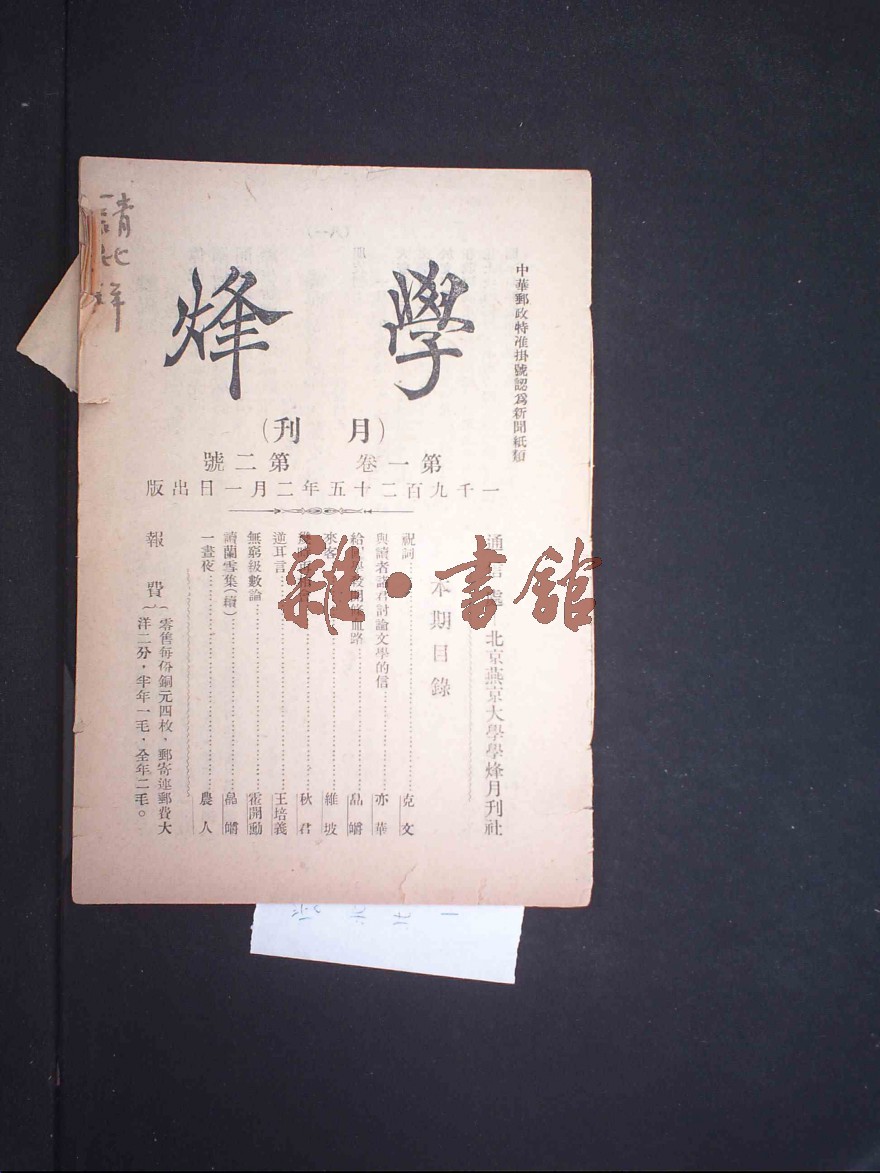 中華郵政特准掛號認爲新聞紙類
學烽
(月刊)
第一卷 第二號
一千九百二十五年二月一日出版
北京燕京大學學烽月刊社
本期目錄
祝詞 克文
與讀者諸君討論文學的信 亦華
給 血路 品皭
來客 維坡
秋君
逆耳言 王培義
無窮級數論 霍開勳
讀蘭雪集(續) 品皭
一晝夜 農人
報費
零售每份銅元四枚，郵寄連郵費大
洋二分，半年一毛，全年二毛。
請
雜·書館